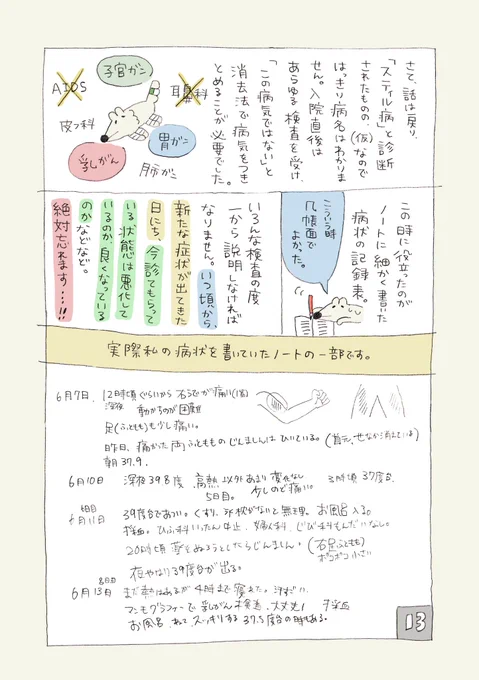 さて、話は戻り、
「スティル病」と診断
されたものの、(仮)なので
はっきり病名はわかりま
せん。入院直後は
あらゆる検査を受け、
「この病気ではない」と
消去法で病気をつき
とめることが必要でした。
子宮ガン
AIDS
耳鼻科
皮フ科
胃ガン
乳がん
肺がん
この時に役立ったのが
ノートに細かく書いた
病状の記録表。
こういう時
几帳面で
よかった。
いろんな検査の度
一から説明しなければ
なりません。いつ頃から、
新たな症状が出てきた
日にち、今診てもらって
いる状態は悪化して
いるのか、良くなっている
のかなどなど。
絶対忘れます…!!
実際私の病状を書いていたノートの一部です。
6月7日、12時頃ぐらいから右うでが痛い(1名)
深夜 動かすのが困難
足(ふともも)も少し痛い。
昨日、痛かった両ふとももの じんましんは ひいている。(首元、せなか消えている)
朝37.9
6月10日 深夜39.8度 高熱以外あまり変化なし 3時頃37度台
5日目。 少しのど痛い。
6月11日 39度台であつい。くすり、氷枕がないと無理。お風呂入る。
検血。ひふ科いったん中止、婦人科、じびもんだいなし。
20時頃 薬をぬろうとしたらじんましん。(右足ふともも)
ボコボコ小さい
夜やはり39度台が出る。
8日目
6月13日 まだ熱はあるが4時まで寝れた。汗だい
マンモグラフィーで乳がん検査、大丈夫!
お風呂、ねて、スッキリする 37.5度台の時もある。
13